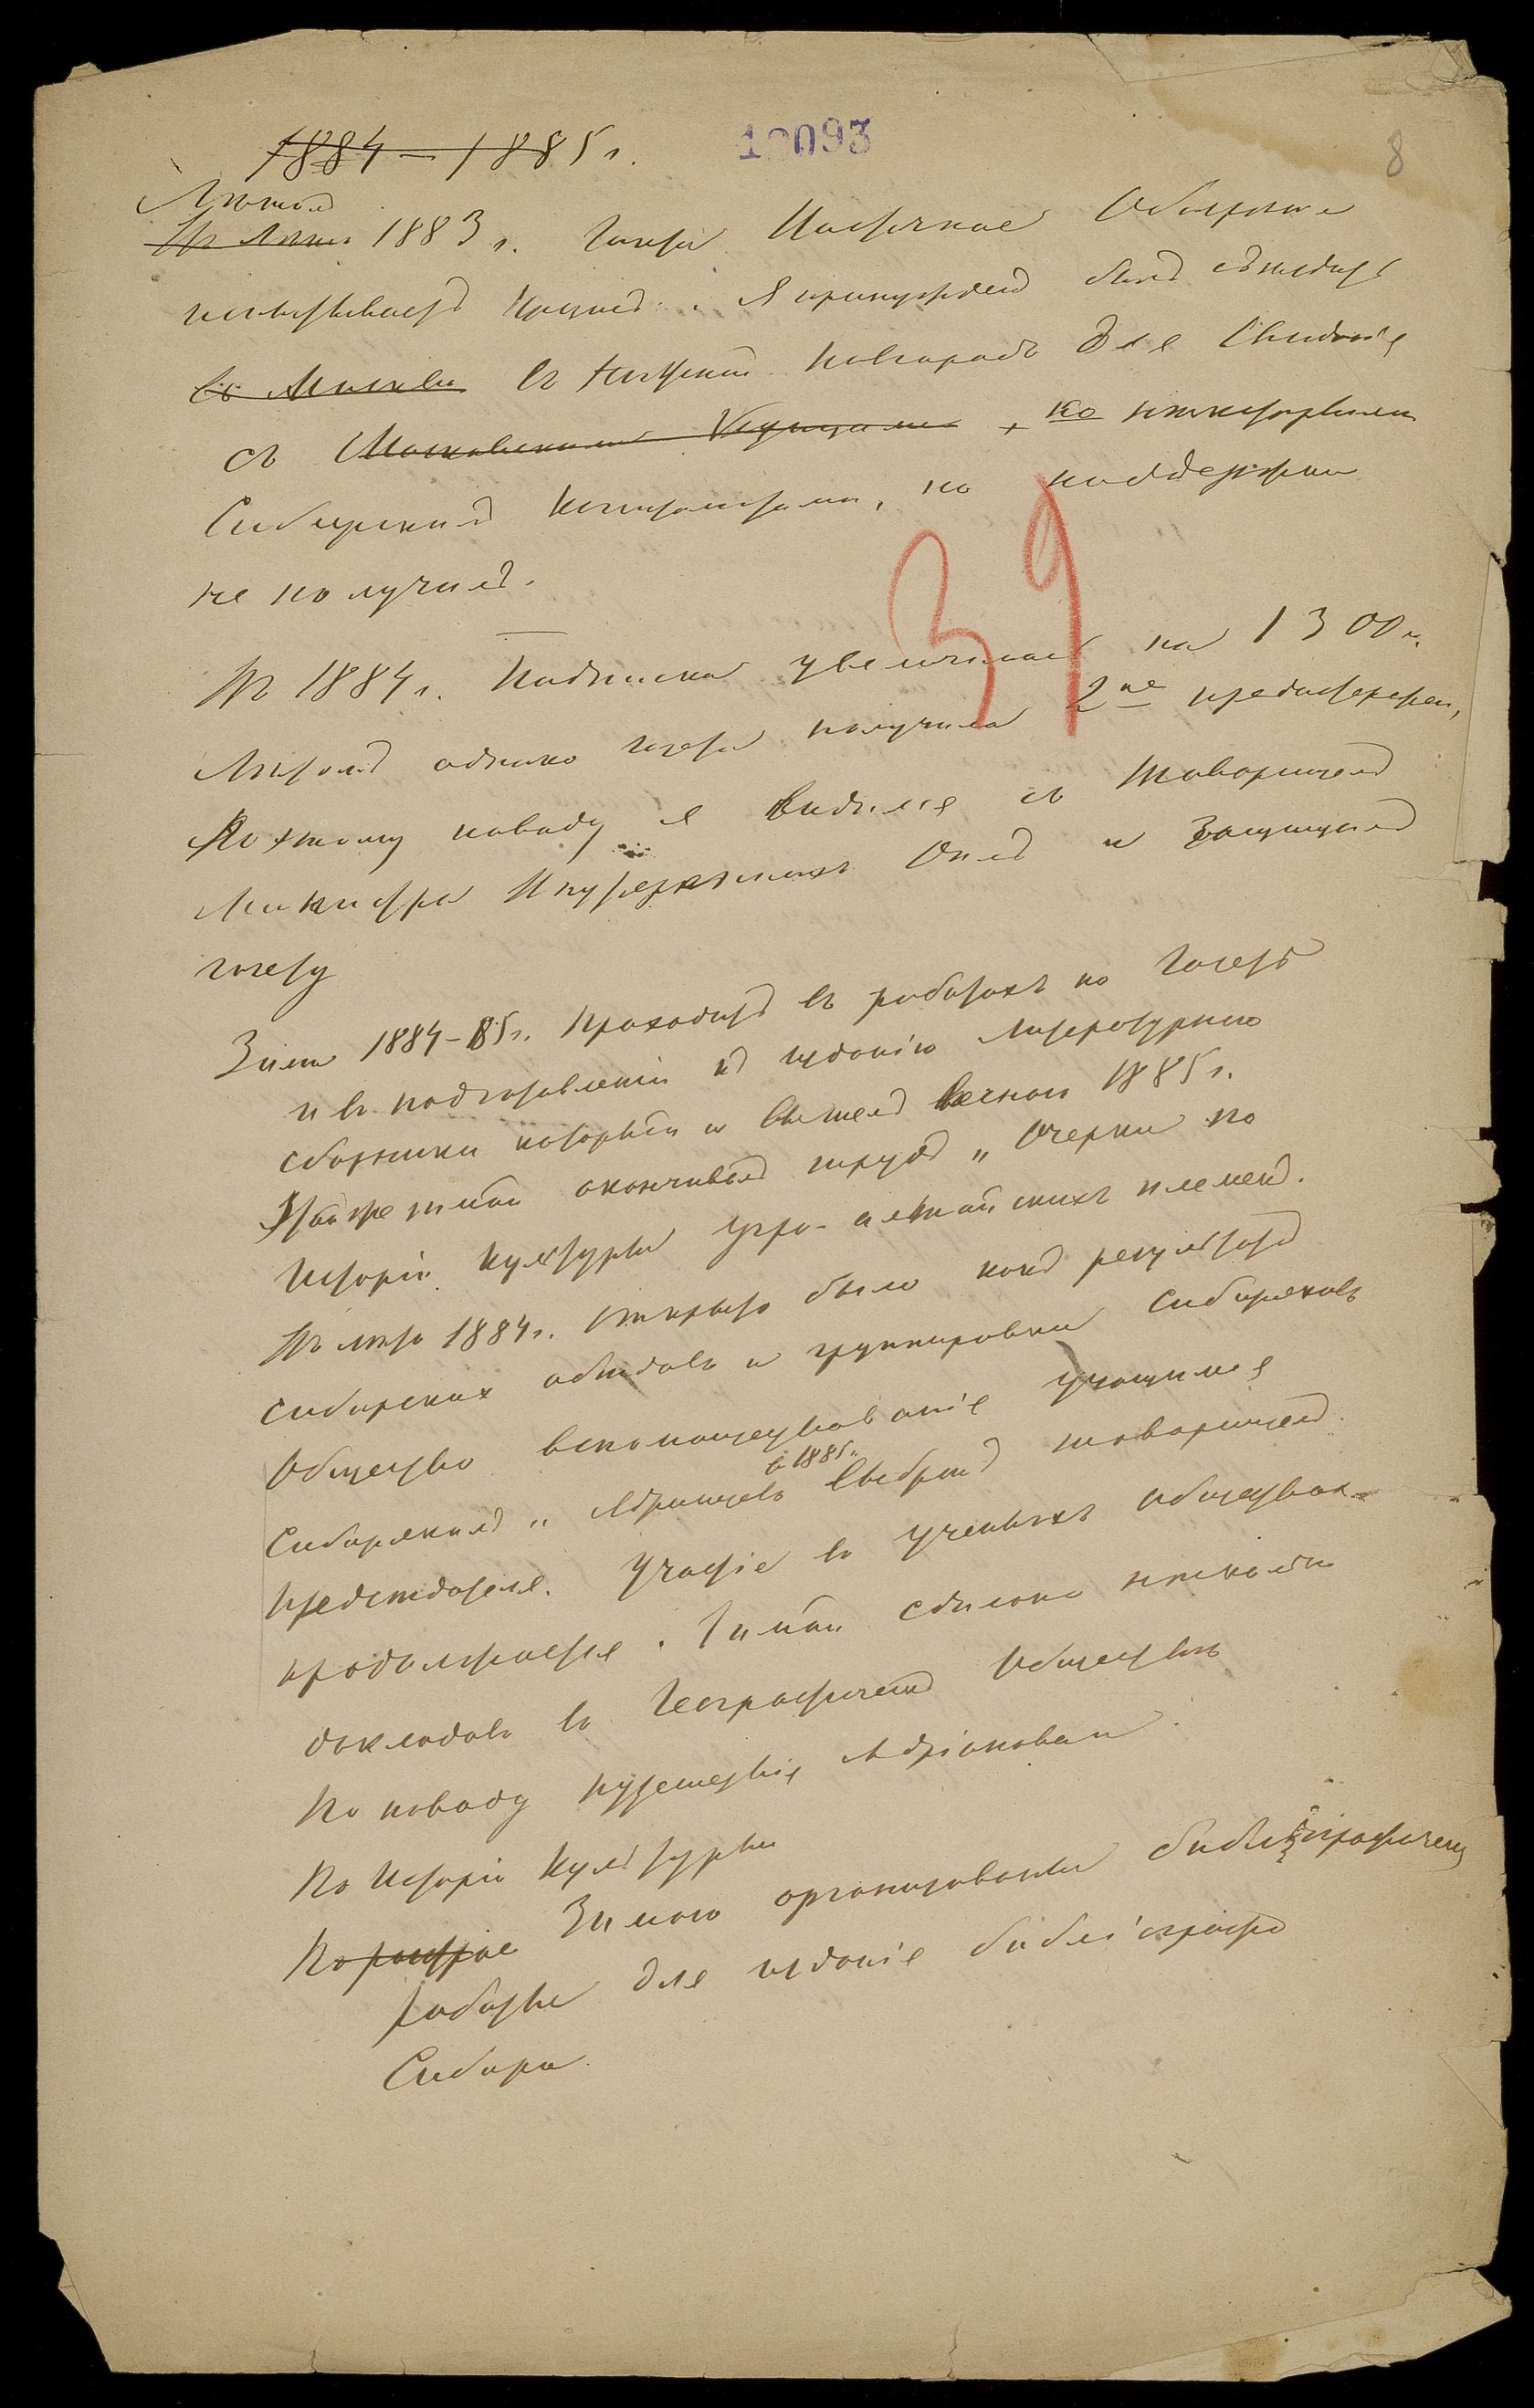 1884–1885 г.
10093
8
Лѣтомъ
1883 г. газета Восточное Обозрѣніе
испытываетъ кризисъ. Я принужденъ былъ съѣздить
въ Москву въ Нижній Новгородъ для свиданія
съ Московскими купцами, но нѣкоторыми
Сибирскими капиталистами, но поддержки
не получилъ.
39
Въ 1884 г. Подписка увеличилась на 1300 п.
Лѣтомъ однако газета получила 2ое предостережен,
По этому поводу я видѣлся съ товарищемъ
Министра Внутреннихъ Дѣлъ и защищалъ
газету
Зима 1884–85 г. проходитъ въ работахъ по газетѣ
и въ подготовленіи къ изданію литературнаго
сборника который и вышелъ весною 1885 г.
Той же зимой оканчивалъ трудъ „Очерки по
Исторіи культуры угро-алтайскихъ племенъ.
Въ лѣто 1884 г. открыто было какъ результатъ
сибирских обѣдовъ и группировки сибиряковъ
Общество вспомоществованія учащимся
в 1885 г.
Сибирякамъ „ Ядринцевъ выбранъ товарищемъ
предсѣдателя. Участіе въ ученыхъ обществах
продолжается. Зимой сдѣлано нѣсколько
докладовъ въ Географическ Обществѣ
По поводу путешествія Адріанова
По Исторіи Культуры
По Зимою организованы библіографическ
работы для изданія библіографіи
Сибири.